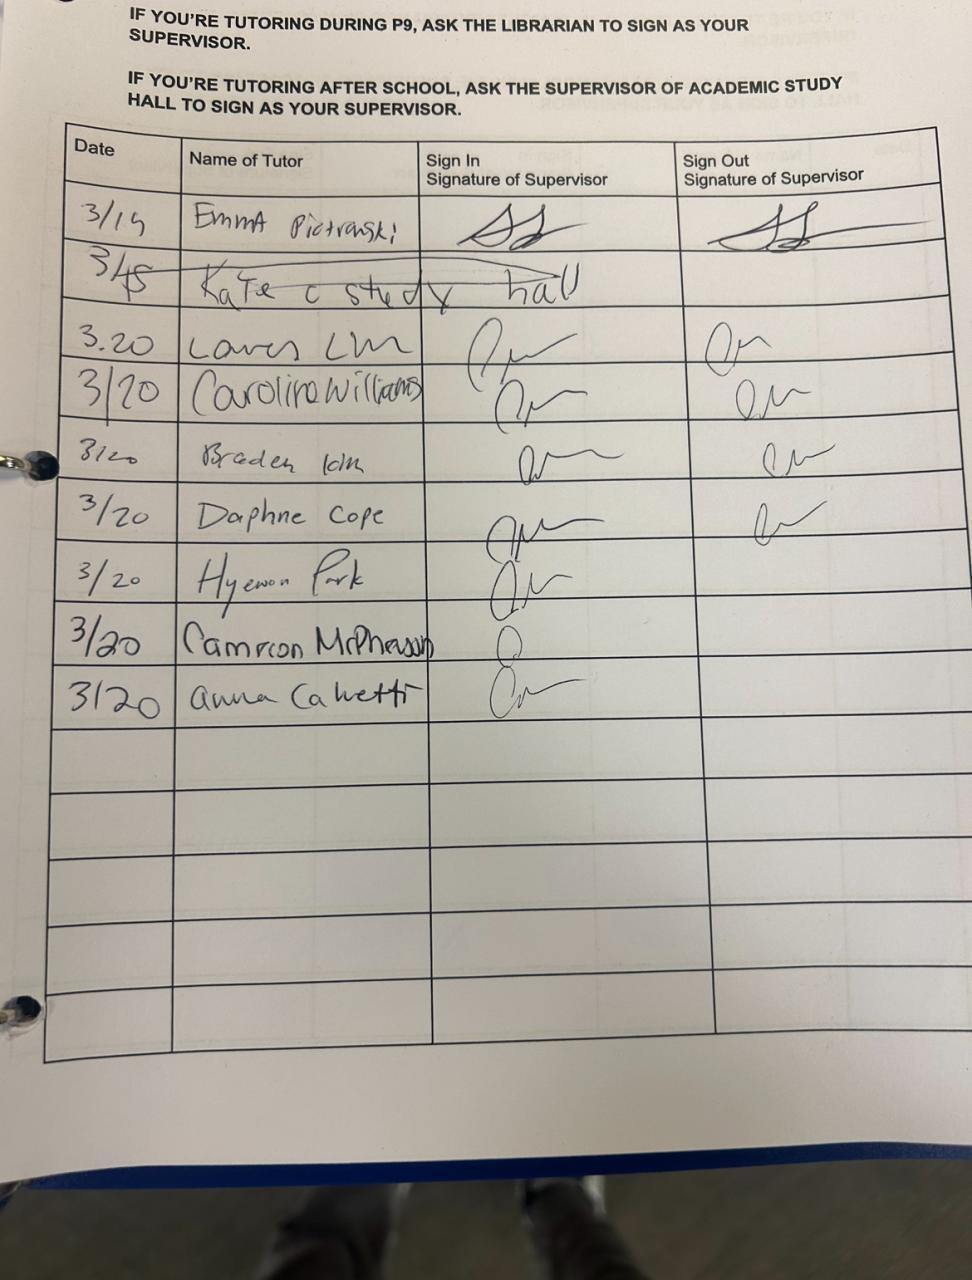 IF YOU'RE TUTORING DURING P9, ASK THE LIBRARIAN TO SIGN AS YOUR
SUPERVISOR.
IF YOU'RE TUTORING AFTER SCHOOL, ASK THE SUPERVISOR OF ACADEMIC STUDY
HALL TO SIGN AS YOUR SUPERVISOR.
Date Name of Tutor Sign In Signature of Supervisor Sign Out Signature of Supervisor
3/19 Emma
Kate study hall
3.20
3/20 Caroline Williams
3/20 Braden Kim
3/20 Daphne Cope
3/20 Hyewon Park
3/20 McPherson
3/20 anna Calvetti